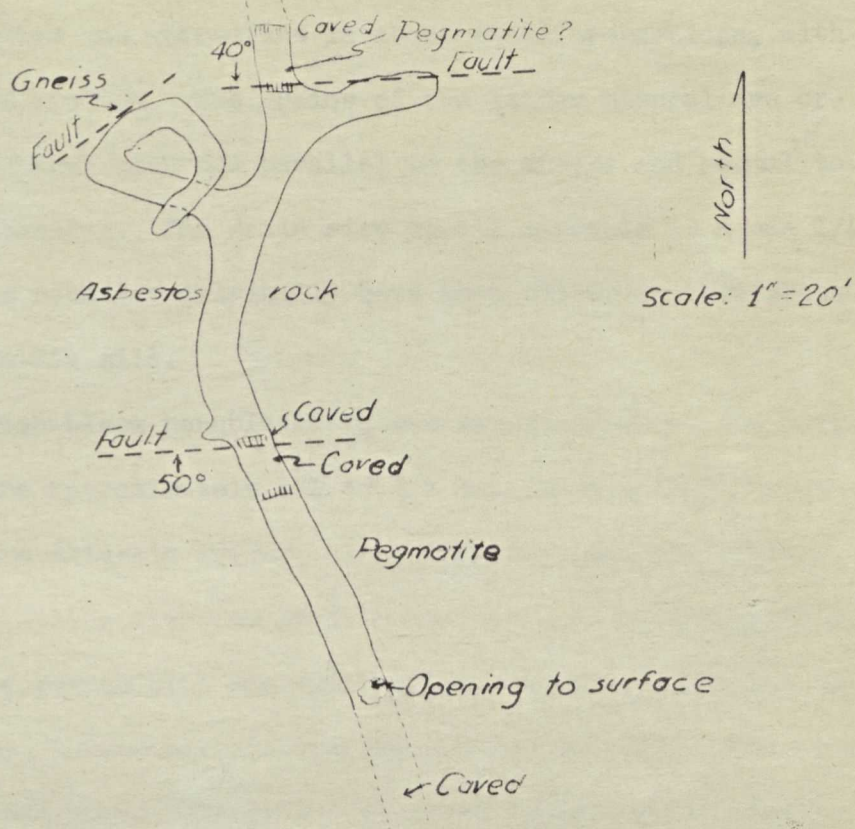 Caved
Pegmatite?
40°
Fault
Gneiss
Fault
North
Asbestos rock
Scale: 1"=20'
Caved
Fault
Caved
50°
Pegmatite
Opening to surface
Caved